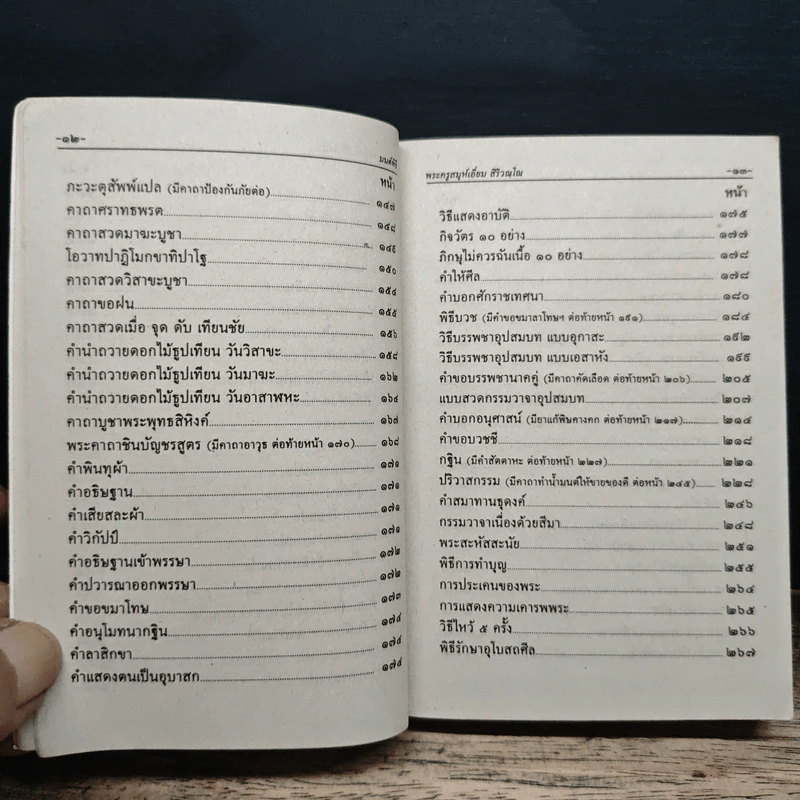 -๑๒-
มนต์พิธี
หน้า
ภะวะตุสัพพ์แปล (มีคาถาป้องกันภัยต่อ) ๑๔๗
คาถาศราทธพรต ๑๔๘
คาถาสวดมาฆะบูชา ๑๔๙
โอวาทปาฏิโมกขาทิปาโฐ ๑๕๐
คาถาสวดวิสาขะบูชา ๑๕๔
คาถาขอฝน ๑๕๕
คาถาสวดเมื่อ จุด ดับ เทียนชัย ๑๕๖
คำนำถวายดอกไม้ธูปเทียน วันวิสาขะ ๑๕๘
คำนำถวายดอกไม้ธูปเทียน วันมาฆะ ๑๖๒
คำนำถวายดอกไม้ธูปเทียน วันอาสาฬหะ ๑๖๔
คาถาบูชาพระพุทธสิหิงค์ ๑๖๗
พระคาถาชินบัญชรสูตร (มีคาถาอาวุธ ต่อท้ายหน้า ๑๗๐) ๑๖๘
คำพินทุผ้า ๑๗๑
คำอธิษฐาน ๑๗๑
คำเสียสละผ้า ๑๗๑
คำวิกัปป์ ๑๗๑
คำอธิษฐานเข้าพรรษา ๑๗๒
คำปวารณาออกพรรษา ๑๗๒
คำขอขมาโทษ ๑๗๓
คำอนุโมทนากฐิน ๑๗๔
คำลาสิกขา ๑๗๔
คำแสดงตนเป็นอุบาสก ๑๗๔
พระครูสมุห์เอี่ยม สิริวณฺโณ
-๑๓-
หน้า
วิธีแสดงอาบัติ ๑๗๕
กิจวัตร ๑๐ อย่าง ๑๗๗
ภิกษุไม่ควรฉันเนื้อ ๑๐ อย่าง ๑๗๘
คำให้ศีล ๑๗๘
คำบอกศักราชเทศนา ๑๘๐
พิธีบวช (มีคำขอขมาลาโทษฯ ต่อท้ายหน้า ๑๙๑) ๑๘๔
วิธีบรรพชาอุปสมบท แบบอุกาสะ ๑๙๒
วิธีบรรพชาอุปสมบท แบบเอสาหัง ๑๙๙
คำขอบรรพชานาคคู่ (มีคาถาคัดเลือด ต่อท้ายหน้า ๒๐๖) ๒๐๕
แบบสวดกรรมวาจาอุปสมบท ๒๐๗
คำบอกอนุศาสน์ (มียาแก้พิษคางคก ต่อท้ายหน้า ๒๑๗) ๒๑๔
คำขอบวชชี ๒๑๘
กฐิน (มีคำสัตตาหะ ต่อท้ายหน้า ๒๒๗) ๒๒๑
ปริวาสกรรม (มีคาถาทำน้ำมนต์ให้ขายของดี ต่อหน้า ๒๔๕) ๒๒๘
คำสมาทานธุดงค์ ๒๔๖
กรรมวาจาเนื่องด้วยสีมา ๒๔๘
พระสะหัสสะนัย ๒๕๑
พิธีการทำบุญ ๒๕๕
การประเคนของพระ ๒๖๔
การแสดงความเคารพพระ ๒๖๕
วิธีไหว้ ๕ ครั้ง ๒๖๖
พิธีรักษาอุโบสถศีล ๒๖๗